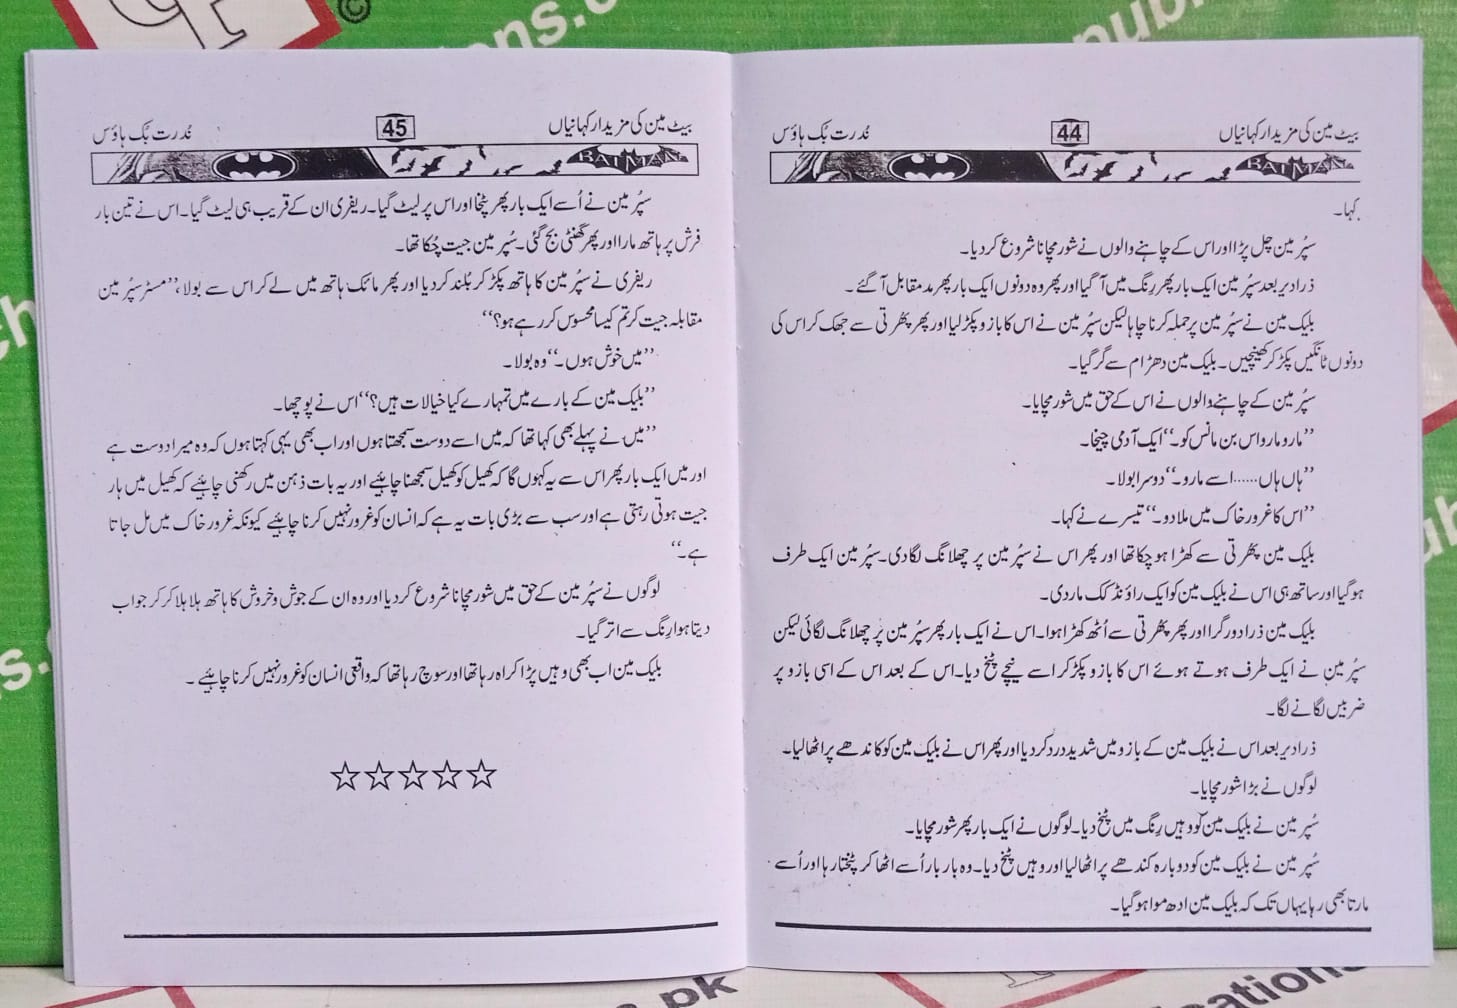 بیٹ مین کی مزیدار کہانیاں
44
نُدرت بُک ہاؤس
BATMAN
کہا۔
سپُر مین چل پڑا اور اس کے چاہنے والوں نے شور مچانا شروع کر دیا۔
ذرا دیر بعد سپُر مین ایک بار پھر رِنگ میں آ گیا اور پھر وہ دونوں ایک بار پھر مدمقابل آ گئے۔
بلیک مین نے سپُر مین پر حملہ کرنا چاہا لیکن سپُر مین نے اس کا بازو پکڑ لیا اور پھر پھُرتی سے جھک کر اس کی
دونوں ٹانگیں پکڑ کر کھینچیں۔ بلیک مین دھڑام سے گر گیا۔
سپُر مین کے چاہنے والوں نے اس کے حق میں شور مچایا۔
’’مارو مارو اس بن مانس کو۔‘‘ ایک آدمی چیخا۔
’’ہاں ہاں......اسے مارو۔‘‘ دوسرا بولا۔
’’اس کا غرور خاک میں ملا دو۔‘‘ تیسرے نے کہا۔
بلیک مین پھُرتی سے کھڑا ہو چکا تھا اور پھر اس نے سپُر مین پر چھلانگ لگا دی۔ سپُر مین ایک طرف
ہو گیا اور ساتھ ہی اس نے بلیک مین کو ایک راؤنڈ کک مار دی۔
بلیک مین ذرا دور گرا اور پھر پھُرتی سے اُٹھ کھڑا ہوا۔ اس نے ایک بار پھر سپُر مین پر چھلانگ لگائی لیکن
سپُر مین نے ایک طرف ہوتے ہوئے اس کا بازو پکڑ کر اسے نیچے پٹخ دیا۔ اس کے بعد اس کے اسی بازو پر
ضربیں لگانے لگا۔
ذرا دیر بعد اس نے بلیک مین کے بازو میں شدید درد کر دیا اور پھر اس نے بلیک مین کو کاندھے پر اٹھا لیا۔
لوگوں نے بڑا شور مچایا۔
سپُر مین نے بلیک مین کو وہیں رِنگ میں پٹخ دیا۔ لوگوں نے ایک بار پھر شور مچایا۔
سپُر مین نے بلیک مین کو دوبارہ کندھے پر اٹھا لیا اور وہیں پٹخ دیا۔ وہ بار بار اُسے اٹھا کر پٹختا رہا اور اُسے
مارتا بھی رہا یہاں تک کہ بلیک مین ادھ موا ہو گیا۔
بیٹ مین کی مزیدار کہانیاں
45
نُدرت بُک ہاؤس
BATMAN
سپُر مین نے اُسے ایک بار پھر پٹخا اور اس پر لیٹ گیا۔ ریفری ان کے قریب ہی لیٹ گیا۔ اس نے تین بار
فرش پر ہاتھ مارا اور پھر گھنٹی بج گئی۔ سُپر مین جیت چُکا تھا۔
ریفری نے سپُر مین کا ہاتھ پکڑ کر بُلند کر دیا اور پھر مائک ہاتھ میں لے کر اس سے بولا، ’’مسٹر سپُر مین
مقابلہ جیت کر تم کیسا محسوس کر رہے ہو؟‘‘
’’میں خوش ہوں۔‘‘ وہ بولا۔
’’بلیک مین کے بارے میں تمہارے کیا خیالات ہیں؟‘‘ اس نے پوچھا۔
’’میں نے پہلے بھی کہا تھا کہ میں اسے دوست سمجھتا ہوں اور اب بھی یہی کہتا ہوں کہ وہ میرا دوست ہے
اور میں ایک بار پھر اس سے یہ کہوں گا کہ کھیل کو کھیل سمجھنا چاہیئے اور یہ بات ذہن میں رکھنی چاہیئے کہ کھیل میں ہار
جیت ہوتی رہتی ہے اور سب سے بڑی بات یہ ہے کہ انسان کو غرور نہیں کرنا چاہیئے کیونکہ غرور خاک میں مل جاتا
ہے۔‘‘
لوگوں نے سپُر مین کے حق میں شور مچانا شروع کر دیا اور وہ ان کے جوش و خروش کا ہاتھ ہلا ہلا کر کر جواب
دیتا ہوا رِنگ سے اتر گیا۔
بلیک مین اب بھی وہیں پڑا کراہ رہا تھا اور سوچ رہا تھا کہ واقعی انسان کو غرور نہیں کرنا چاہیئے۔
☆☆☆☆☆